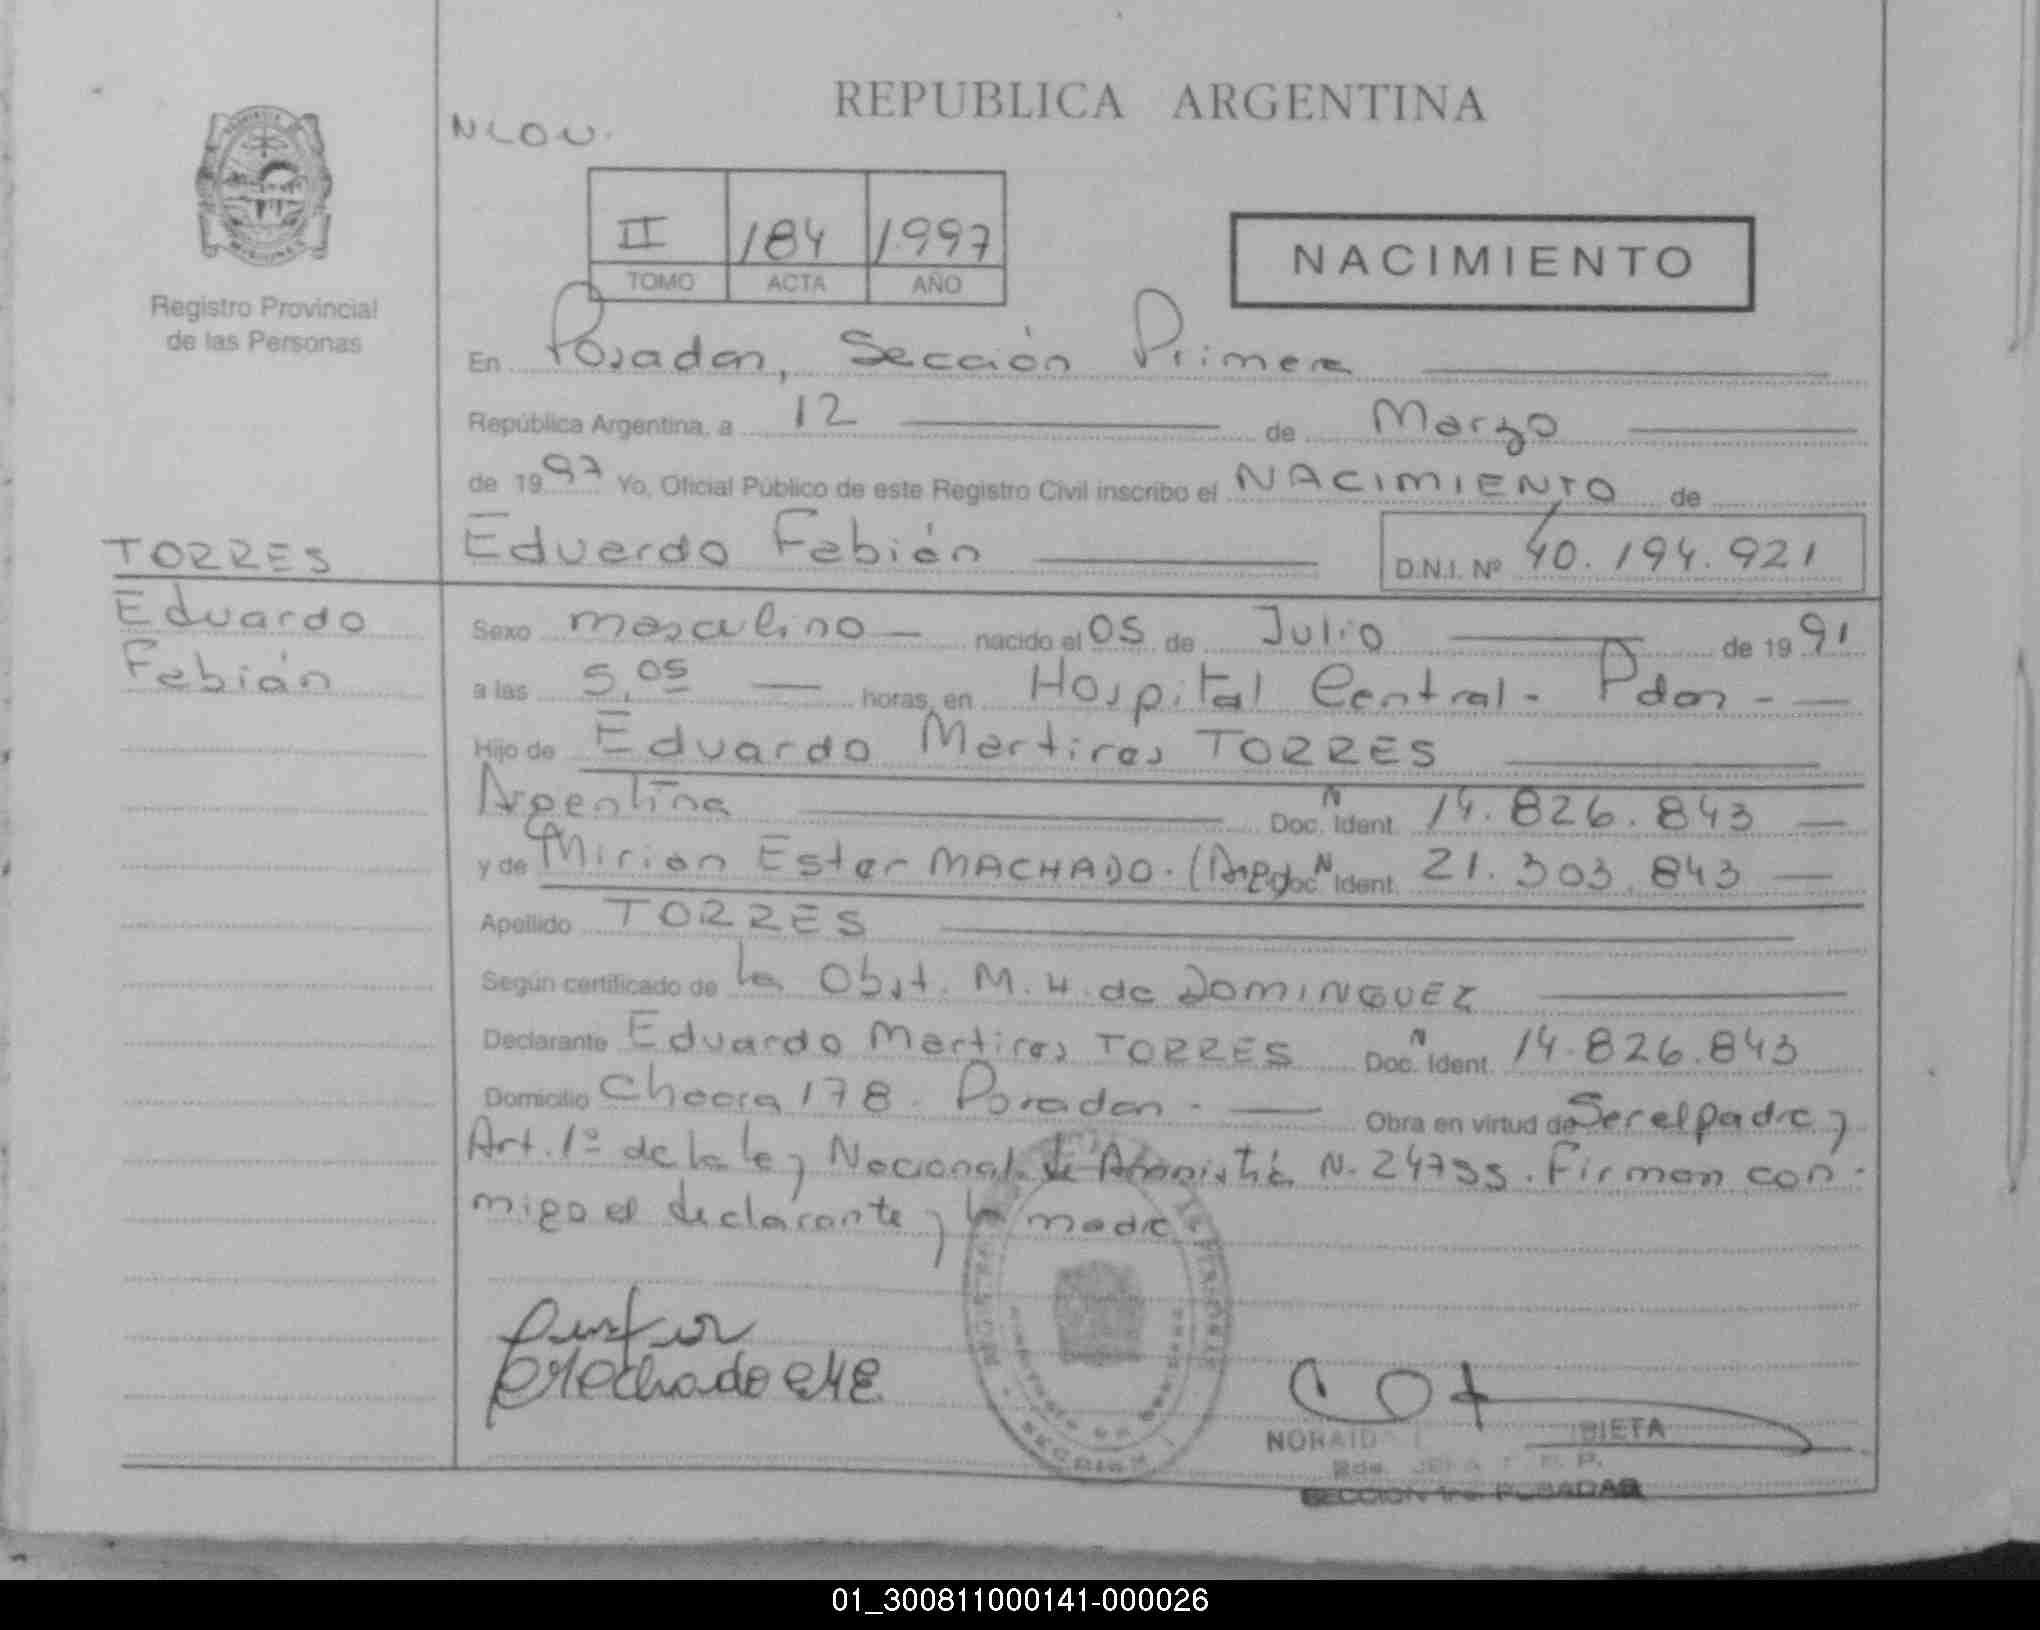 REPUBLICA ARGENTINA
NLOU.
II 184 1997
TOMO ACTA AÑO
NACIMIENTO
Registro Provincial
de las Personas
En Posadas, Sección Primera
República Argentina, a 12 de Marzo
de 1997 Yo, Oficial Público de este Registro Civil inscribo el NACIMIENTO de
Eduardo Fabián D.N.I. Nº 40.194.921
TORRES
Eduardo
Fabián
Sexo masculino nacido el 05 de Julio de 1991
a las 5,05 horas, en Hospital Central - Pdas -
Hijo de Eduardo Martires TORRES
Argentina Doc. N Ident. 14.826.843
y de Mirian Ester MACHADO. (Arg) Doc. N Ident. 21.303.843
Apellido TORRES
Según certificado de la Obst. M. H. de DOMINGUEZ
Declarante Eduardo Martires TORRES Doc. N Ident. 14.826.843
Domicilio Chacra 178. Posadas - Obra en virtud de Ser el padre y
Art. 1º de la ley Nacional de Amnistía N. 24755. Firman con-
migo el declarante y la madre.
Machado EME
NORAID IBIETA
Rda. JEFA R. P.
SECCION 1ra. POSADAS
SECCION
01_300811000141-000026